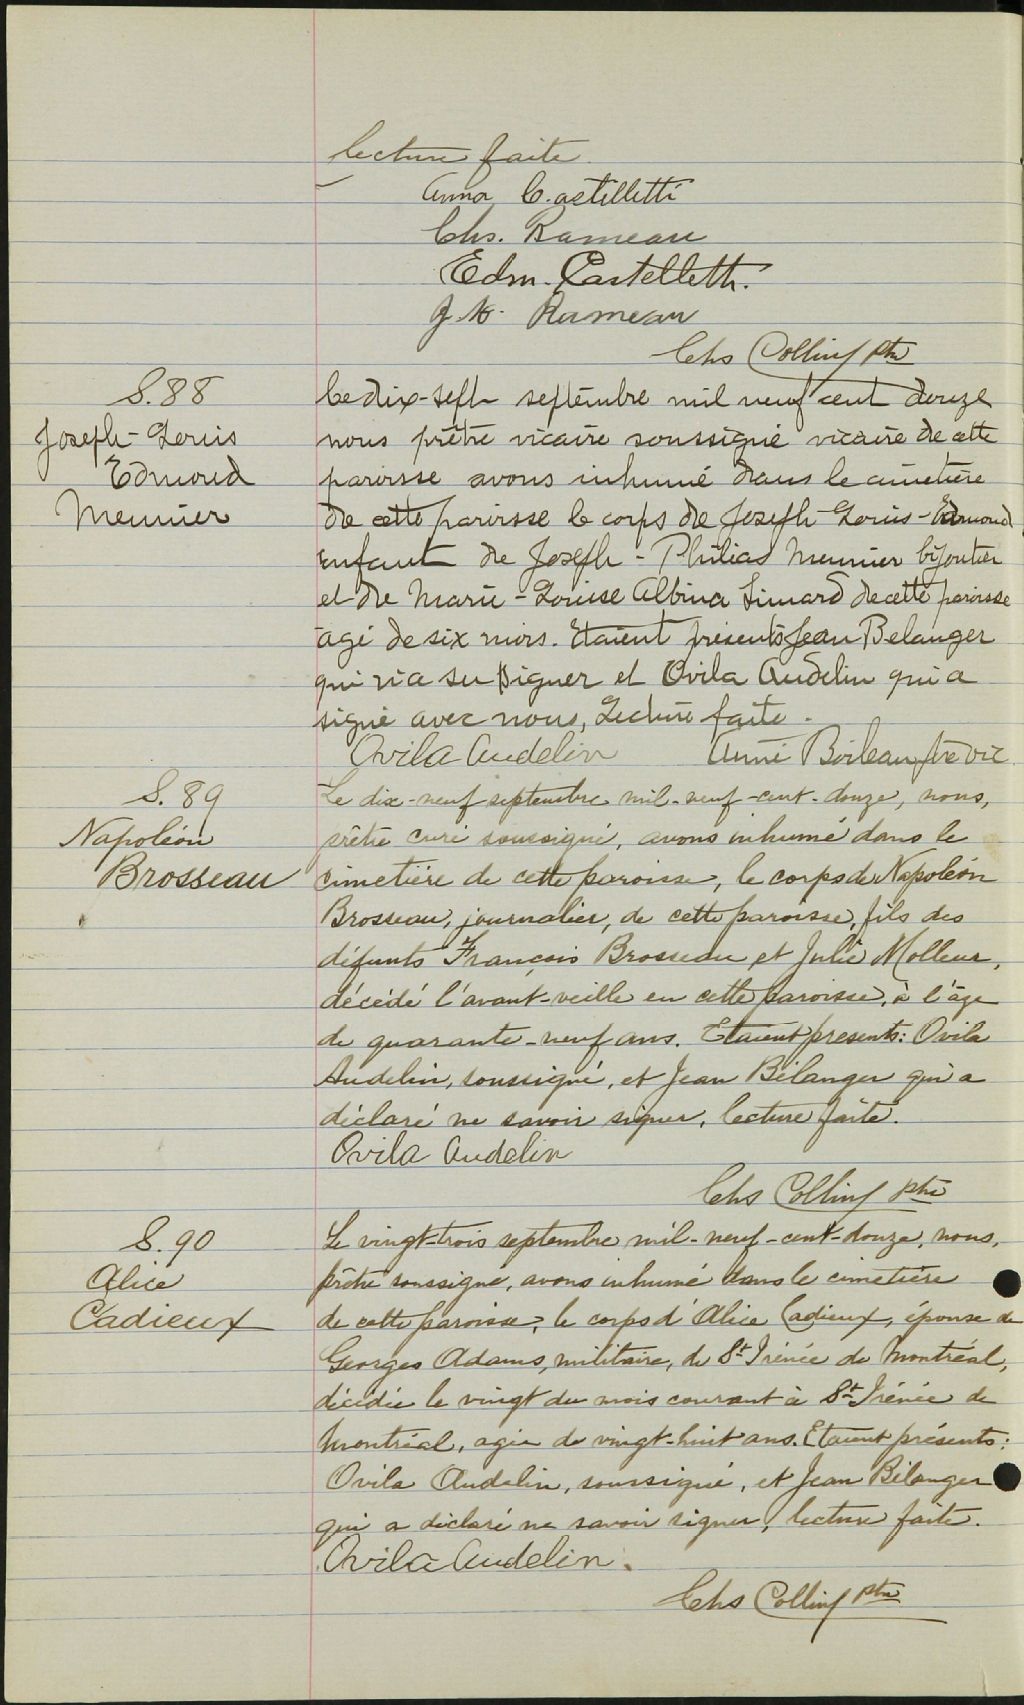 lecture faite
Anna Castilletti
Chs. Rameau
Edm. Castelletti.
J. N. Rameau
Chs Collin ptre
S. 88
Joseph-Louis
Edmond
Meunier
Le dix-sept septembre mil neuf cent douze
nous prêtre vicaire soussigné vicaire de cette
paroisse avons inhumé dans le cimetière
de cette paroisse le corps de Joseph-Louis-Edmond
enfant de Joseph-Philias Meunier bijoutier
et de Marie-Louise Albina Simard de cette paroisse
agé de six mois. Etaient présents Jean Belanger
qui n'a su signer et Ovila Audelin qui a
signé avec nous, Lecture faite.
Ovila Audelin
Aimé Boileau ptre vic
S. 89
Napoléon
Brosseau
Le dix-neuf septembre mil-neuf-cent-douze, nous,
prêtre curé soussigné, avons inhumé dans le
cimetière de cette paroisse, le corps de Napoléon
Brosseau, journalier, de cette paroisse, fils des
défunts François Brosseau et Julie Molleur,
décédé l'avant-veille en cette paroisse, à l'âge
de quarante-neuf ans. Etaient presents: Ovila
Audelin, soussigné, et Jean Bélanger qui a
déclaré ne savoir signer, lecture faite.
Ovila Audelin
Chs Collin ptre
S. 90
Alice
Cadieux
Le vingt-trois septembre mil-neuf-cent-douze, nous,
prêtre soussigné, avons inhumé dans le cimetière
de cette paroisse, le corps d'Alice Cadieux, épouse de
Georges Adams, militaire, de St Irénée de Montréal,
décédée le vingt du mois courant à St Irénée de
Montréal, agée de vingt-huit ans. Etaient présents:
Ovila Audelin, soussigné, et Jean Bélanger
qui a déclaré ne savoir signer, lecture faite.
Ovila Audelin.
Chs Collin ptre